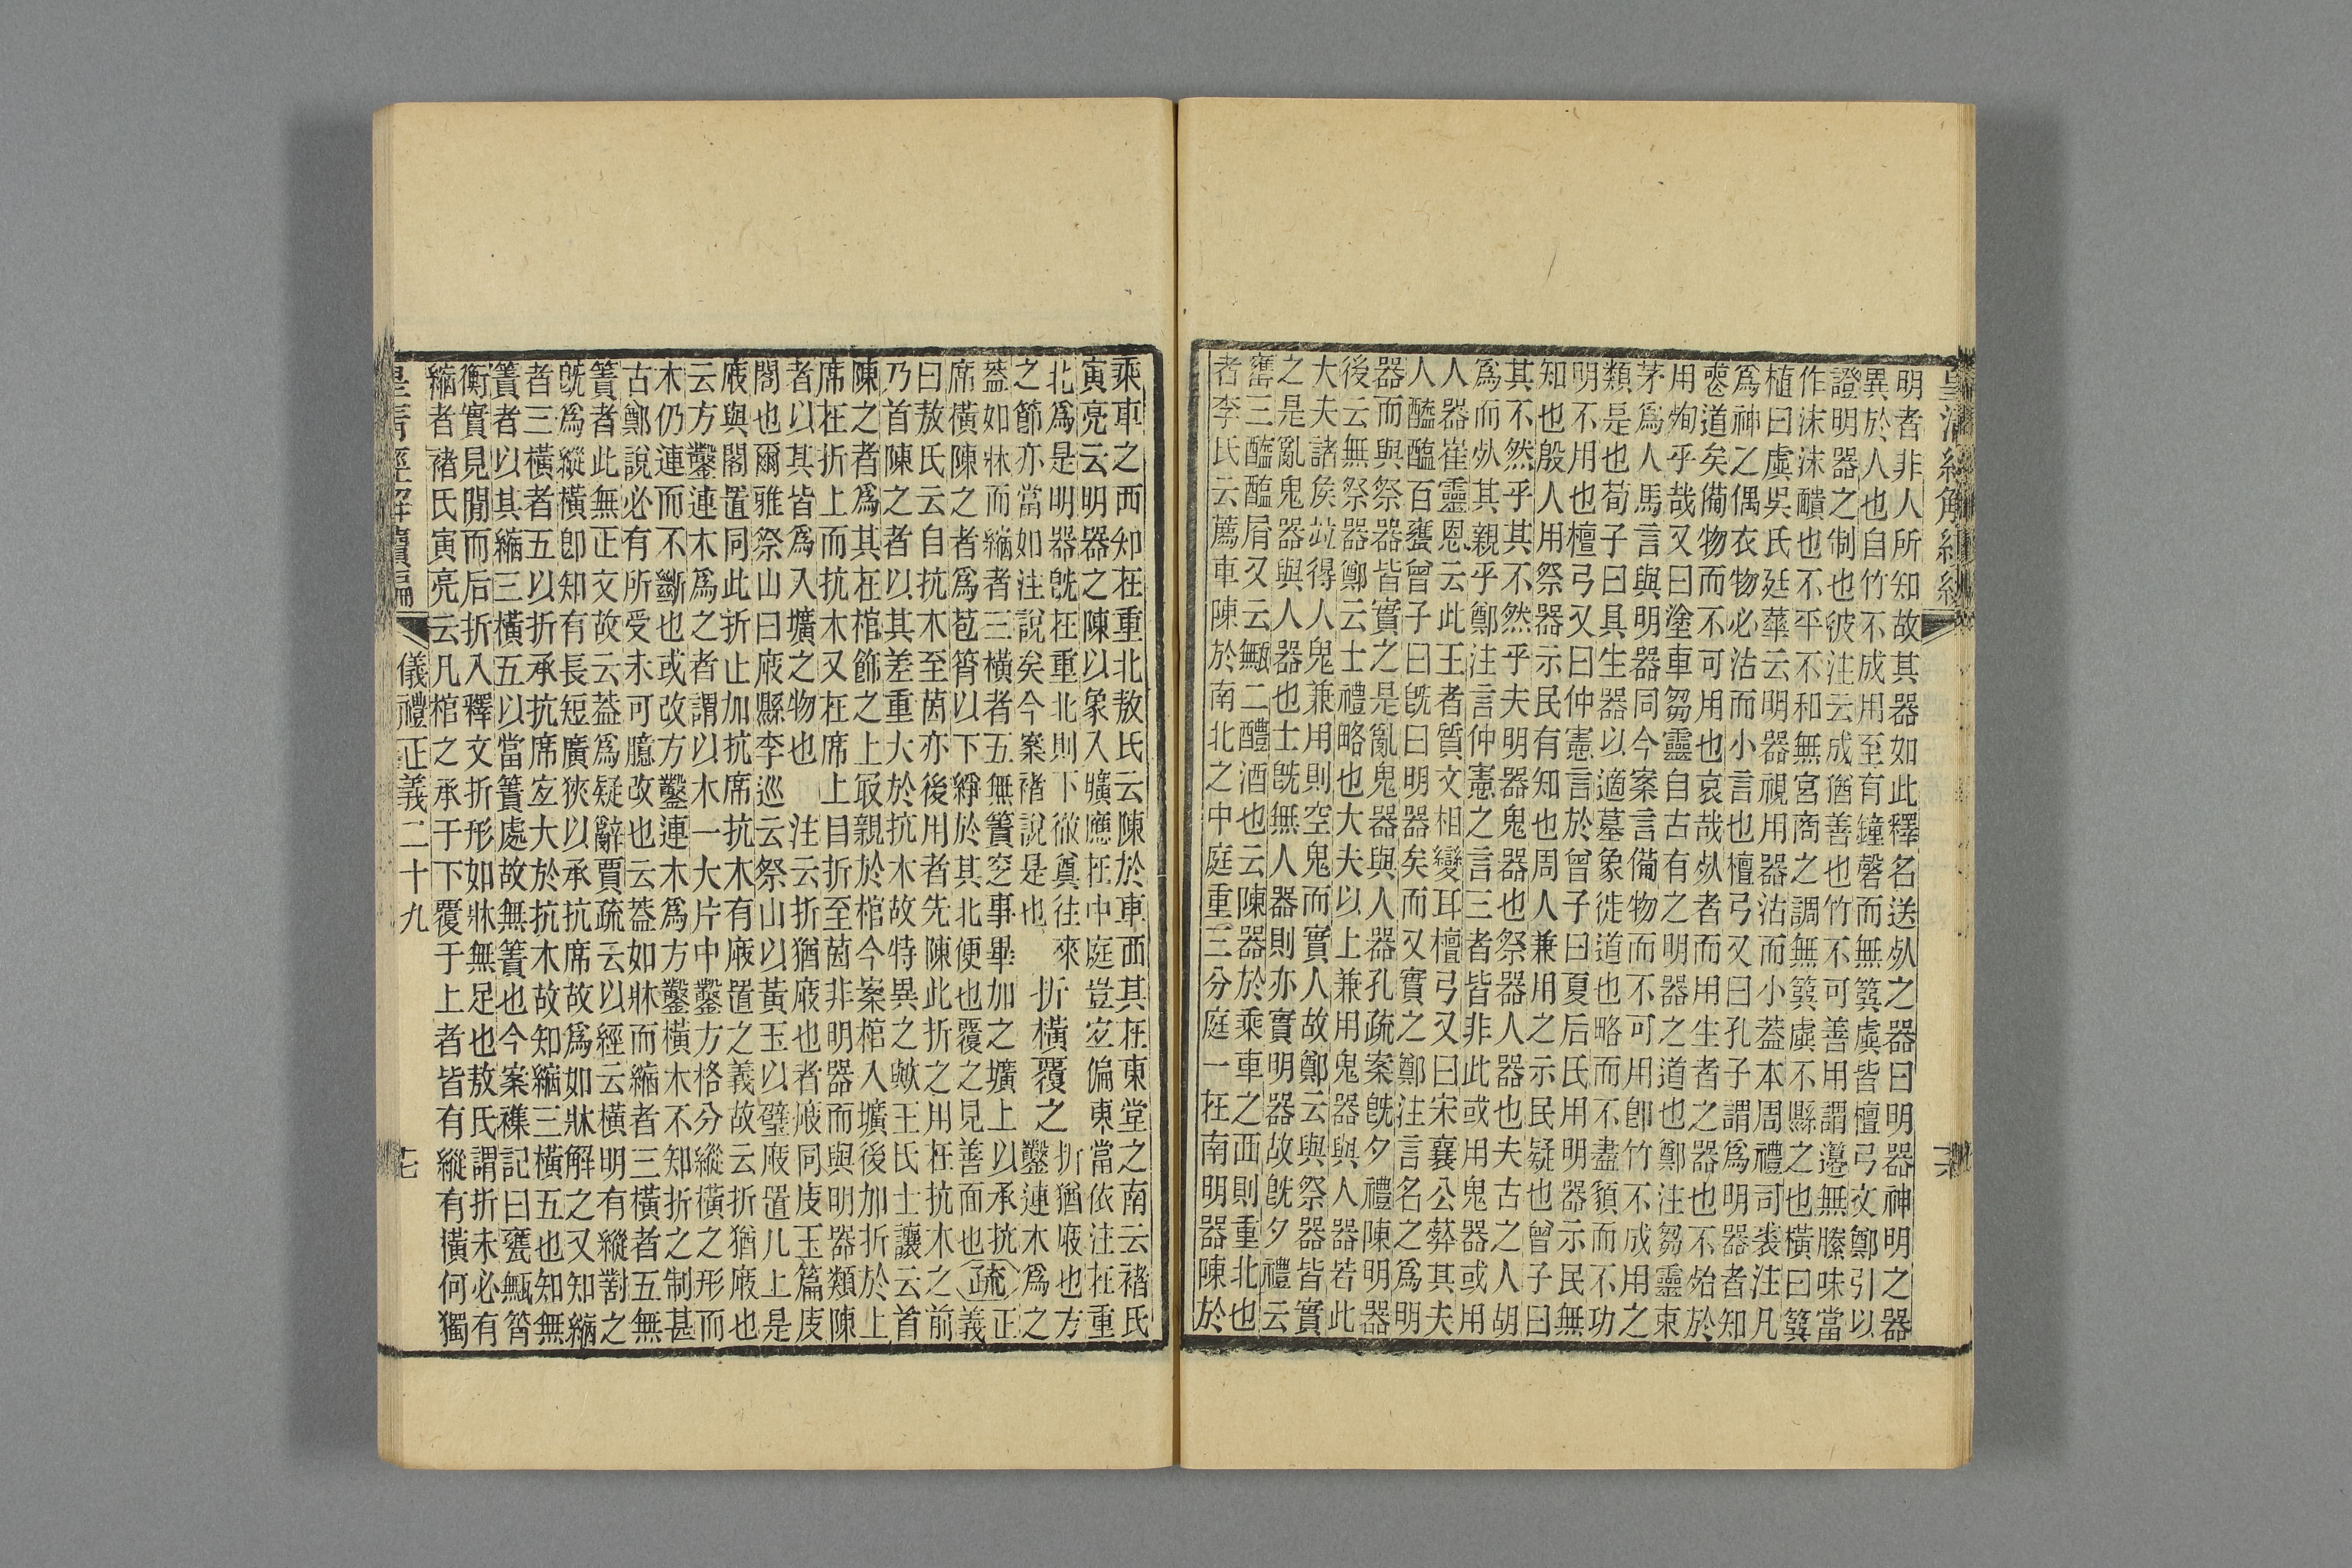 明者非人所知故其器如此釋名送死之器曰明器神明之器
異於人也自竹不成用至有鐘磬而無簨虡皆檀弓文鄭引以
證明器之制也彼注云成猶善也竹不可善用謂邊無縢味當
作沬沬靧也不平不和無宮商之調無簨虡不縣之也橫曰簨
植曰虡吳氏廷華云明器視用器沽而小蓋本周禮司裘注凡
爲神之偶衣物必沽而小言也檀弓又曰孔子謂爲明器者知
喪道矣備物而不可用也哀哉死者而用生者之器也不殆於
用殉乎哉又曰塗車芻靈自古有之明器之道也鄭注芻靈束
茅爲人馬言與明器同今案言備物而不可用卽竹不成用之
類是也荀子曰具生器以適墓象徙道也略而不盡䫉而不功
明不用也檀弓又曰仲憲言於曾子曰夏后氏用明器示民無
知也殷人用祭器示民有知也周人兼用之示民疑也曾子曰
其不然乎其不然乎夫明器鬼器也祭器人器也夫古之人胡
爲而死其親乎鄭注言仲憲之言三者皆非此或用鬼器或用
人器崔靈恩云此王者質文相變耳檀弓又曰宋襄公葬其夫
人醯醢百甕曾子曰旣曰明器矣而又實之鄭注言名之爲明
器而與祭器皆實之是亂鬼器與人器孔疏案旣夕禮陳明器
後云無祭器鄭云士禮略也大夫以上兼用鬼器與人器若此
大夫諸矦竝得人鬼兼用則空鬼而實人故鄭云與祭器皆實
之是亂鬼器與人器也士旣無人器則亦實明器故旣夕禮云
罋三醯醢屑又云甒二醴酒也云陳器於乘車之西則重北也
者李氏云薦車陳於南北之中庭重三分庭一在南明器陳於
乘車之西知在重北敖氏云陳於車西其在東堂之南云褚氏
寅亮云明器之陳以象入壙應在中庭豈宜偏東當依注在重
北爲是明器旣在重北則下徹奠往來
之節亦當如注說矣今案褚說是也
折橫覆之
折猶庪也方
鑿連木爲之
蓋如牀而縮者三橫者五無簀窆事畢加之壙上以承抗
席橫陳之者爲苞筲以下綪於其北便也覆之見善面也
疏
正
義
曰敖氏云自抗木至茵亦後用者先陳此折之用在抗木之前
乃首陳之者以其差重大於抗木故特異之歟王氏士讓云首
陳之者爲其在棺飾之上㝡親於棺今案棺入壙後加折於上
席在折上而抗木又在席上目折至茵非明器而與明器類陳
者以其皆爲入壙之物也 注云折猶庪也者庪同庋玉篇庋
閣也爾雅祭山曰庪縣李巡云祭山以黃玉以璧庪置几上是
庪與閣置同此折止加抗席抗木有庪置之義故云折猶庪也
云方鑿連木爲之者謂以木一大片中鑿方格分縱橫之形而
木仍連而不斷也或改方鑿連木爲方鑿橫木不知折之制甚
古鄭說必有所受未可臆改也云蓋如牀而縮者三橫者五無
簀者此無正文故云蓋爲疑辭賈疏云以經云橫明有縱對之
旣爲縱橫卽知有長短廣狹以承抗席故爲如牀解之又知縮
者三橫者五以折承抗席宜大於抗木故知縮三橫五也知無
簀者以其縮三橫五以當簀處故無簀也今案襍記曰甕甒筲
衡實見閒而后折入釋文折形如牀無足也敖氏謂折未必有
縮者褚氏寅亮云凡棺之承于下覆于上者皆有縱有橫何獨
皇清經解續編 儀禮正義二十九